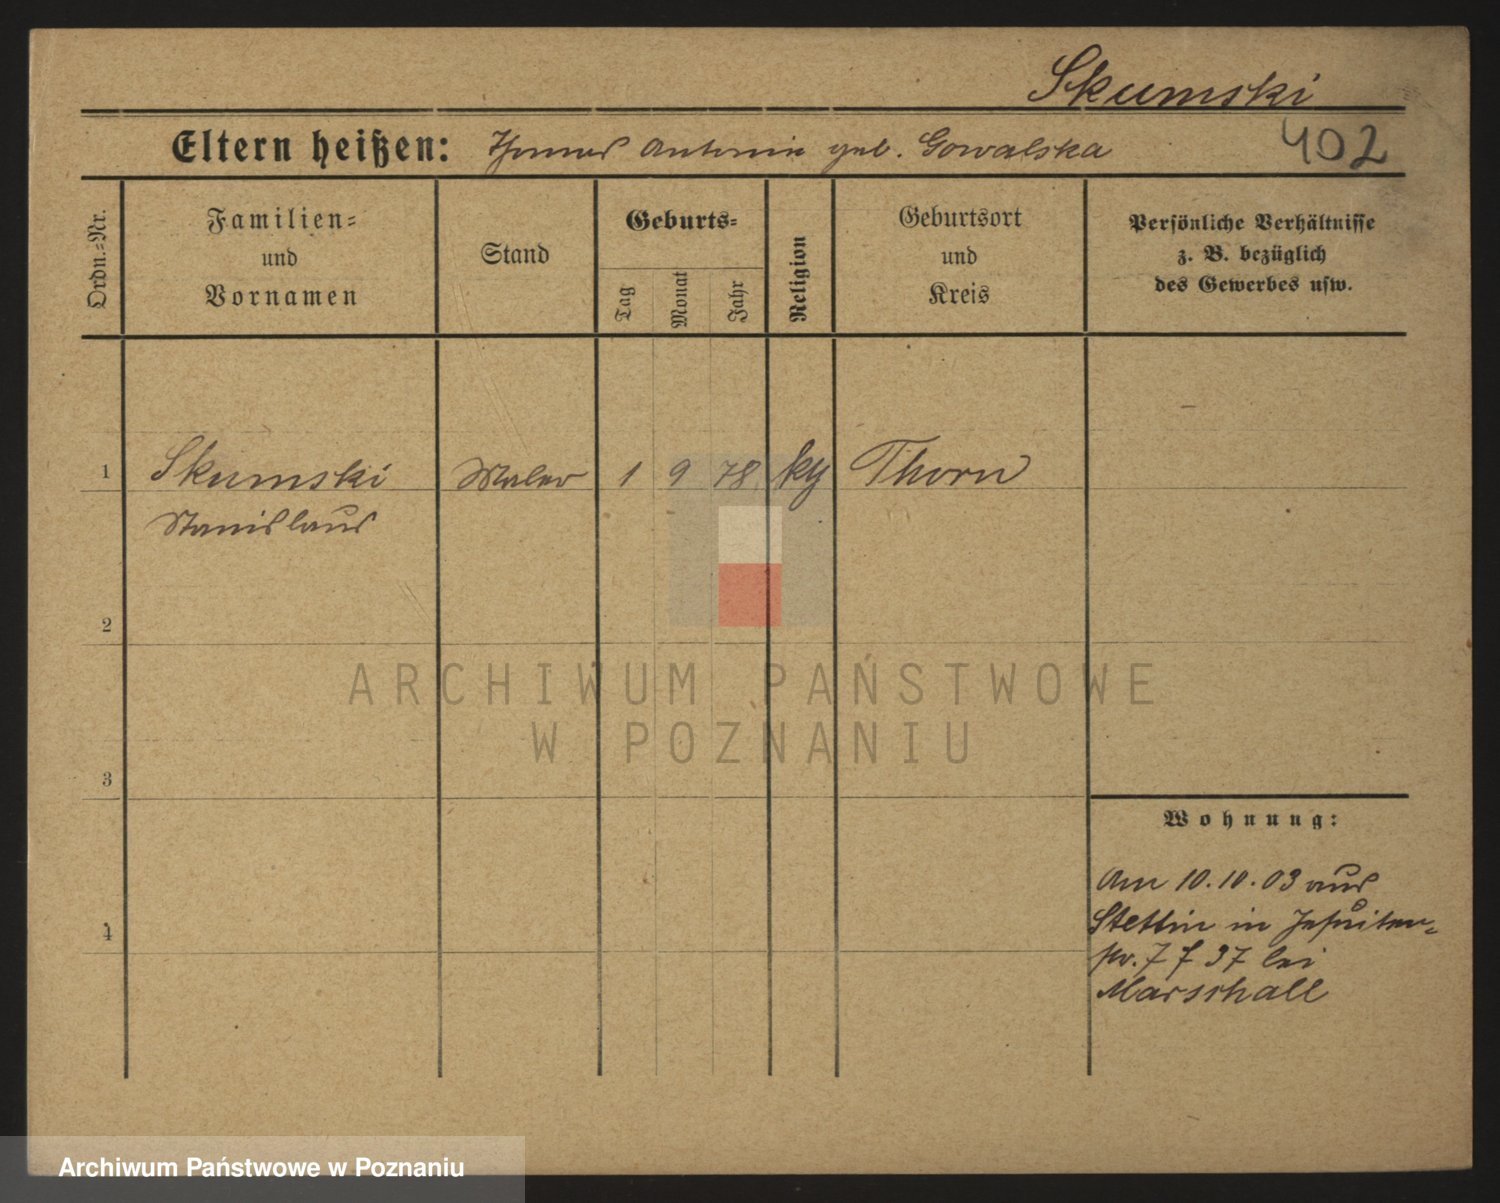 Skumski
Eltern heißen: Thomas Antonie geb. Gowalska 402
Ordn.-Nr.
Familien- und Vornamen
Stand
Geburts-
Tag
Monat
Jahr
Religion
Geburtsort und Kreis
Persönliche Verhältnisse
z. B. bezüglich
des Gewerbes usw.
1 Skumski Maler 1 9 78 Thorn
Stanislaus
2
3
4
Wohnung:
Am 10.10.03 aus
Stettin in Jesuiten-
str. 7 37 bei
Marschall
ARCHIWUM PAŃSTWOWE
W POZNANIU
Archiwum Państwowe w Poznaniu